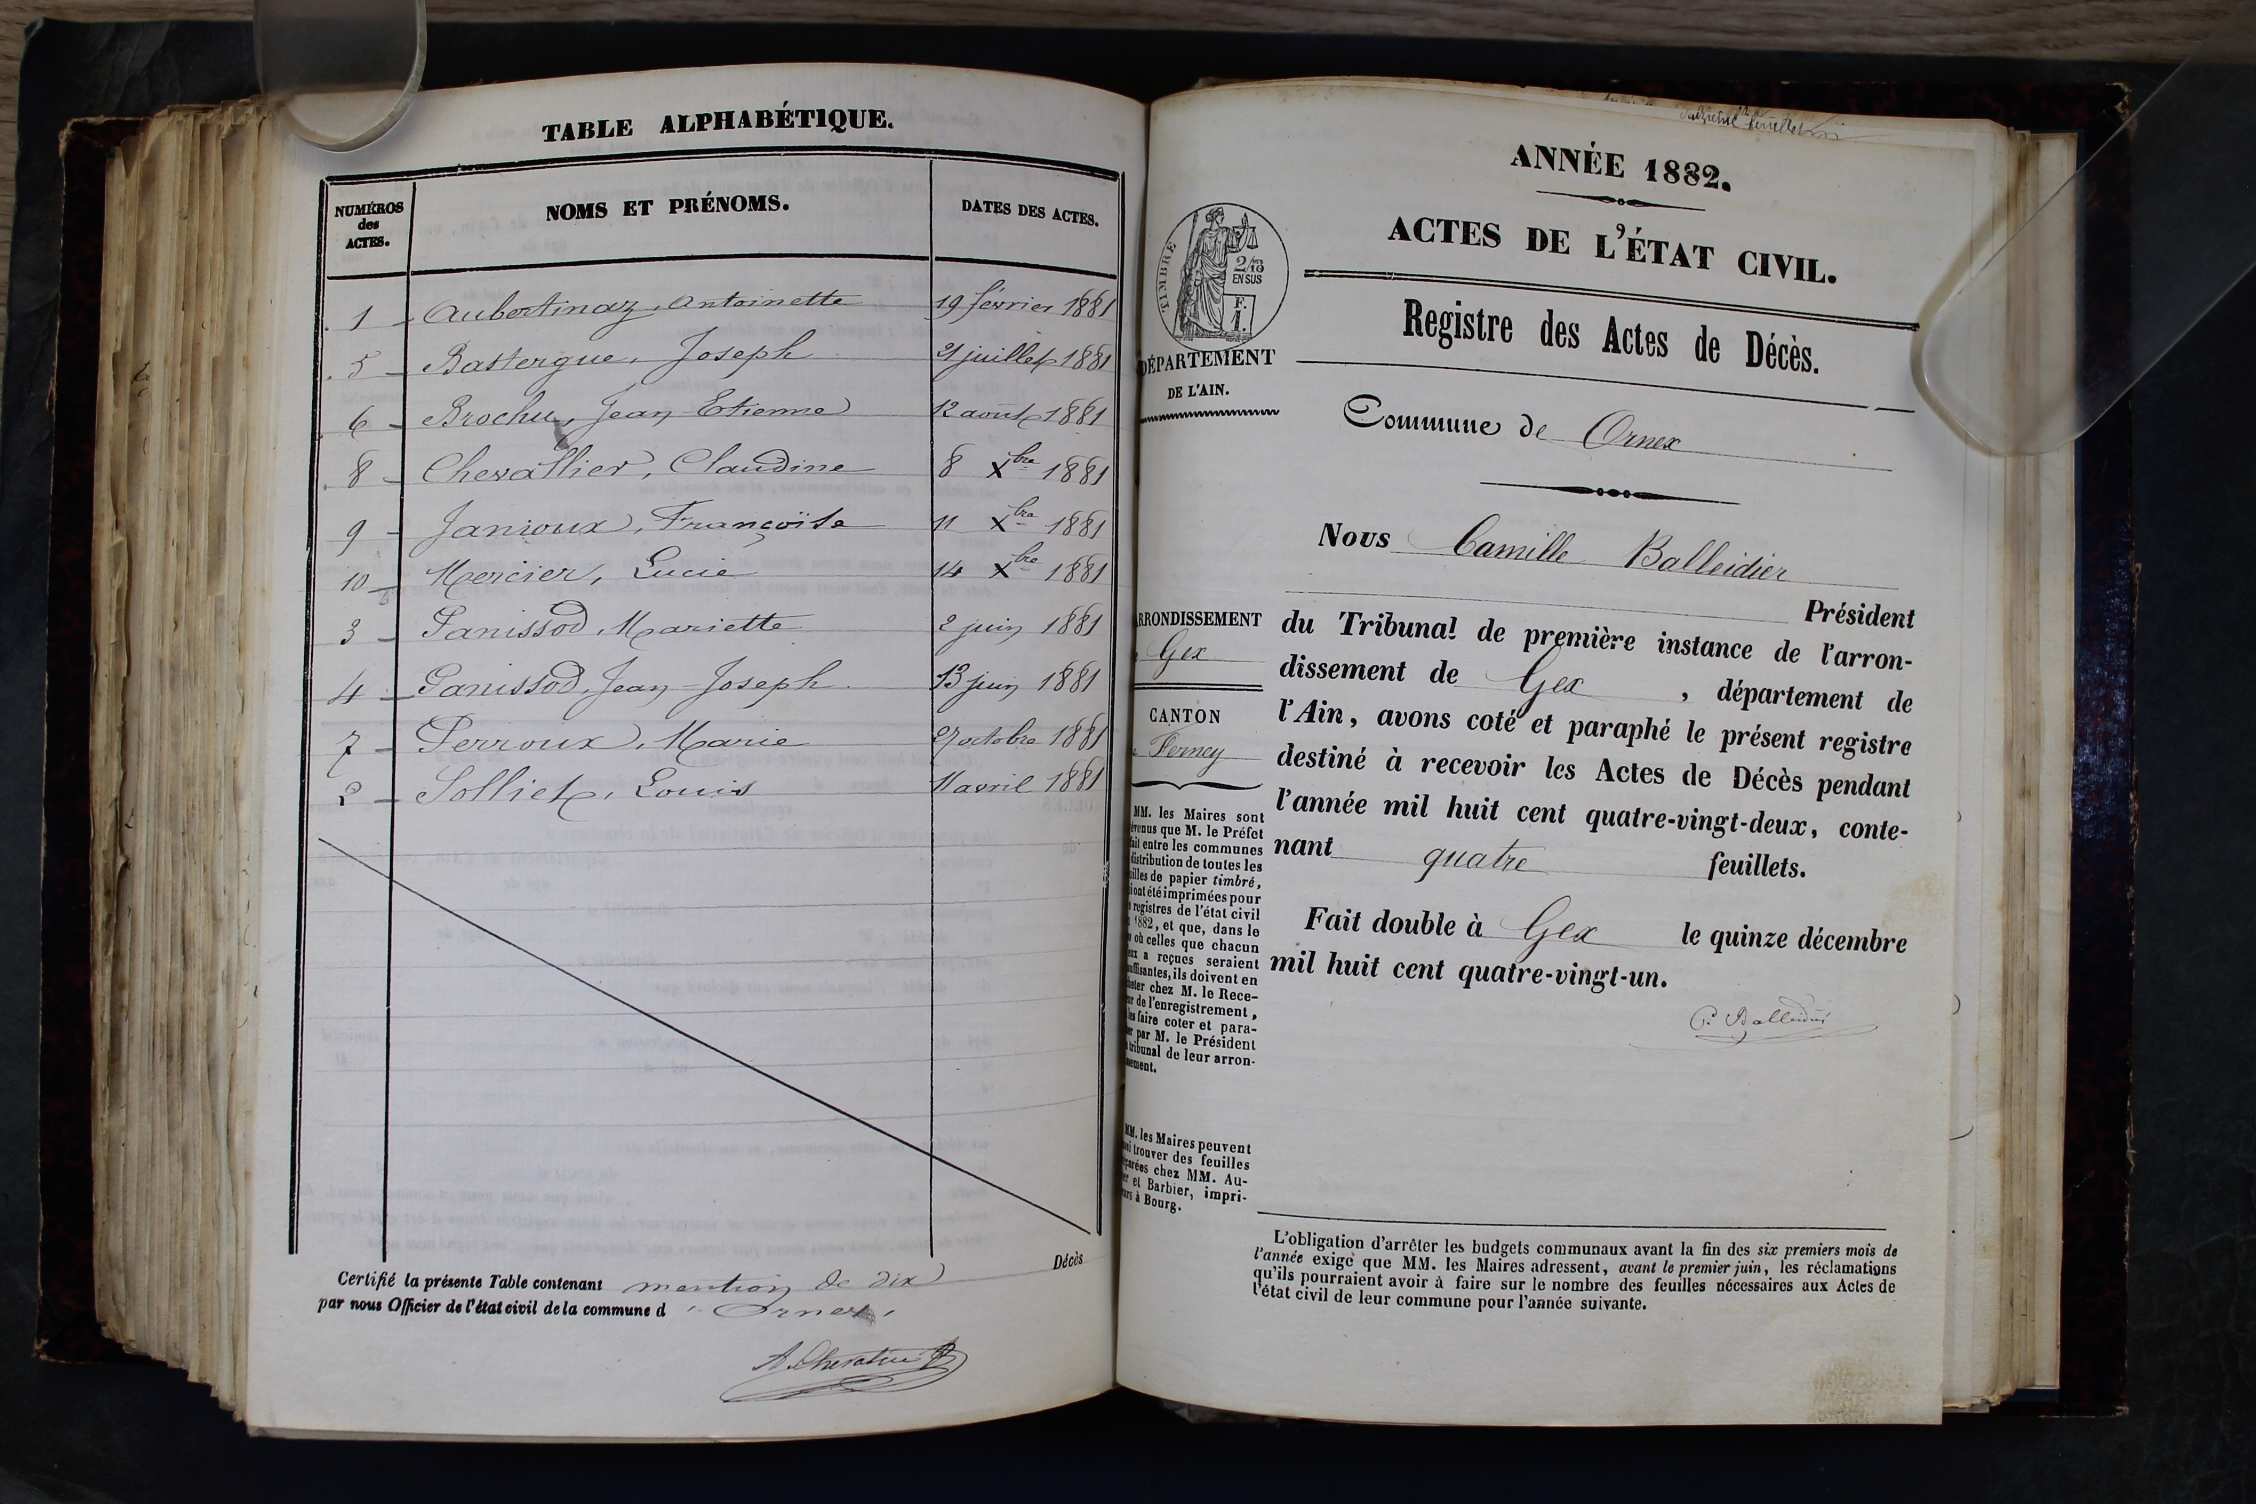 TABLE ALPHABÉTIQUE.
NUMÉROS des ACTES. NOMS ET PRÉNOMS. DATES DES ACTES.
1 Aubertinaz, Antoinette 19 février 1881
5 Bastergue, Joseph 21 juillet 1881
6 Brochu, Jean-Etienne 12 août 1881
8 Chevallier, Claudine 8 Xbre 1881
9 Janioux, Françoise 11 Xbre 1881
10 Mercier, Lucie 14 Xbre 1881
3 Panissod, Mariette 2 juin 1881
4 Panissod, Jean-Joseph 13 juin 1881
7 Perroux, Marie 27 octobre 1881
2 Solliet, Louis 11 avril 1881
Certifié la présente Table contenant mention de dix Décès
par nous Officier de l'état civil de la commune d'Ornex
ANNÉE 1882.
ACTES DE L'ÉTAT CIVIL.
Registre des Actes de Décès.
TIMBRE
2/10
EN SUS
F.
1.
DÉPARTEMENT
DE L'AIN.
Commune de Ornex
Nous Camille Balleidier
Président
du Tribunal de première instance de l'arron-
dissement de Gex, département de
l'Ain, avons coté et paraphé le présent registre
destiné à recevoir les Actes de Décès pendant
l'année mil huit cent quatre-vingt-deux, conte-
nant quatre feuillets.
Fait double à Gex le quinze décembre
mil huit cent quatre-vingt-un.
C. Balleidier
ARRONDISSEMENT
Gex
CANTON
Ferney
MM. les Maires sont
que M. le Préfet
entre les communes
distribution de toutes les
de papier timbré,
ont été imprimées pour
registres de l'état civil
1882, et que, dans le
où celles que chacun
a reçues seraient
ils doivent en
chez M. le Rece-
de l'enregistrement,
les faire coter et para-
par M. le Président
tribunal de leur arron-
MM. les Maires peuvent
trouver des feuilles
chez MM. Au-
et Barbier, impri-
à Bourg.
L'obligation d'arrêter les budgets communaux avant la fin des six premiers mois de
l'année exige que MM. les Maires adressent, avant le premier juin, les réclamations
qu'ils pourraient avoir à faire sur le nombre des feuilles nécessaires aux Actes de
l'état civil de leur commune pour l'année suivante.